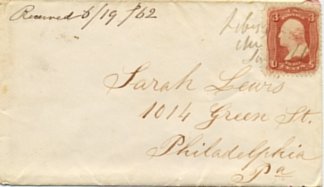 Received 5/19/62
3 3
U S
Sarah Lewis
1014 Green St.
Philadelphia
Pa